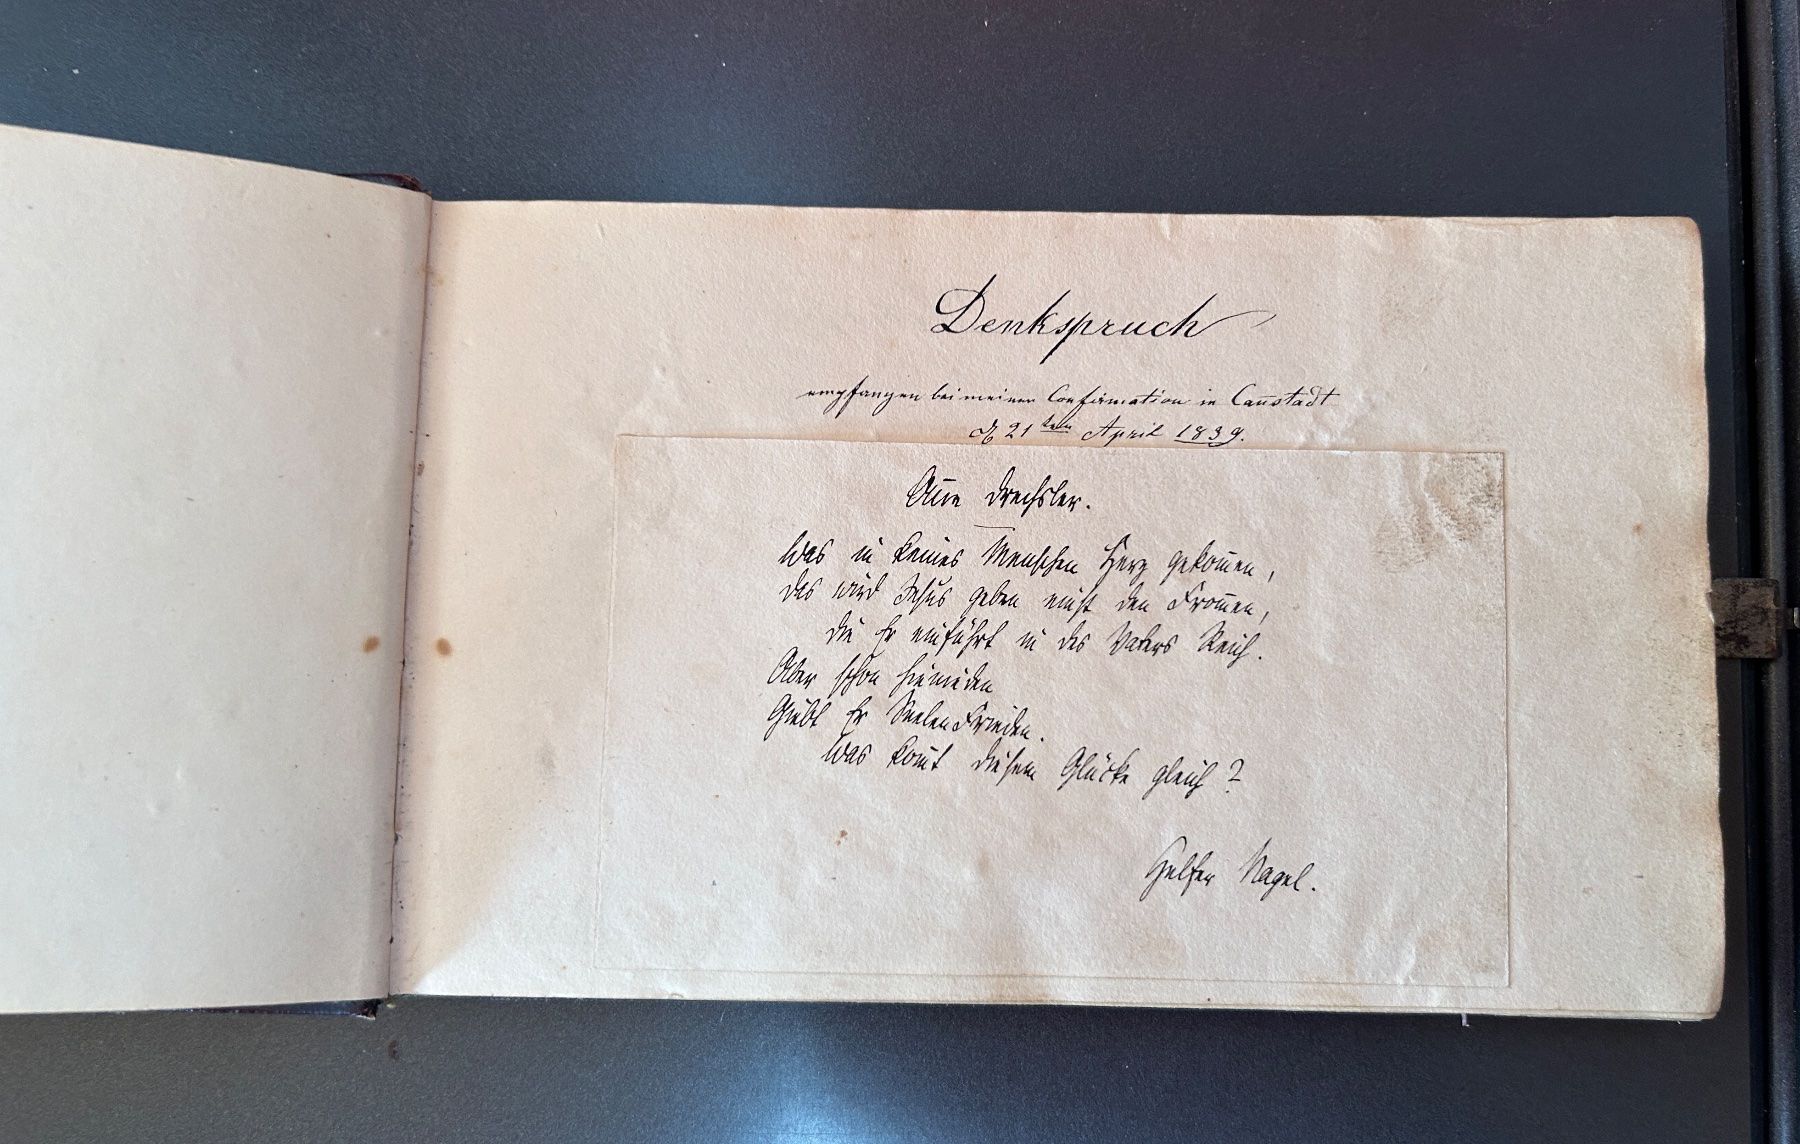 Denkspruch
empfangen bei meiner Confirmation in Canstadt
d. 21ten April 1839.
Drechsler.
Was in keines Menschen Herz gekom̄en,
das wird Jesus geben einst den From̄en,
die Er einführt in des Vaters Reich.
Aber schon hienieden
Giebt Er Seelenfrieden.
Was kom̄t diesem Glücke gleich?
Helfer Nagel.